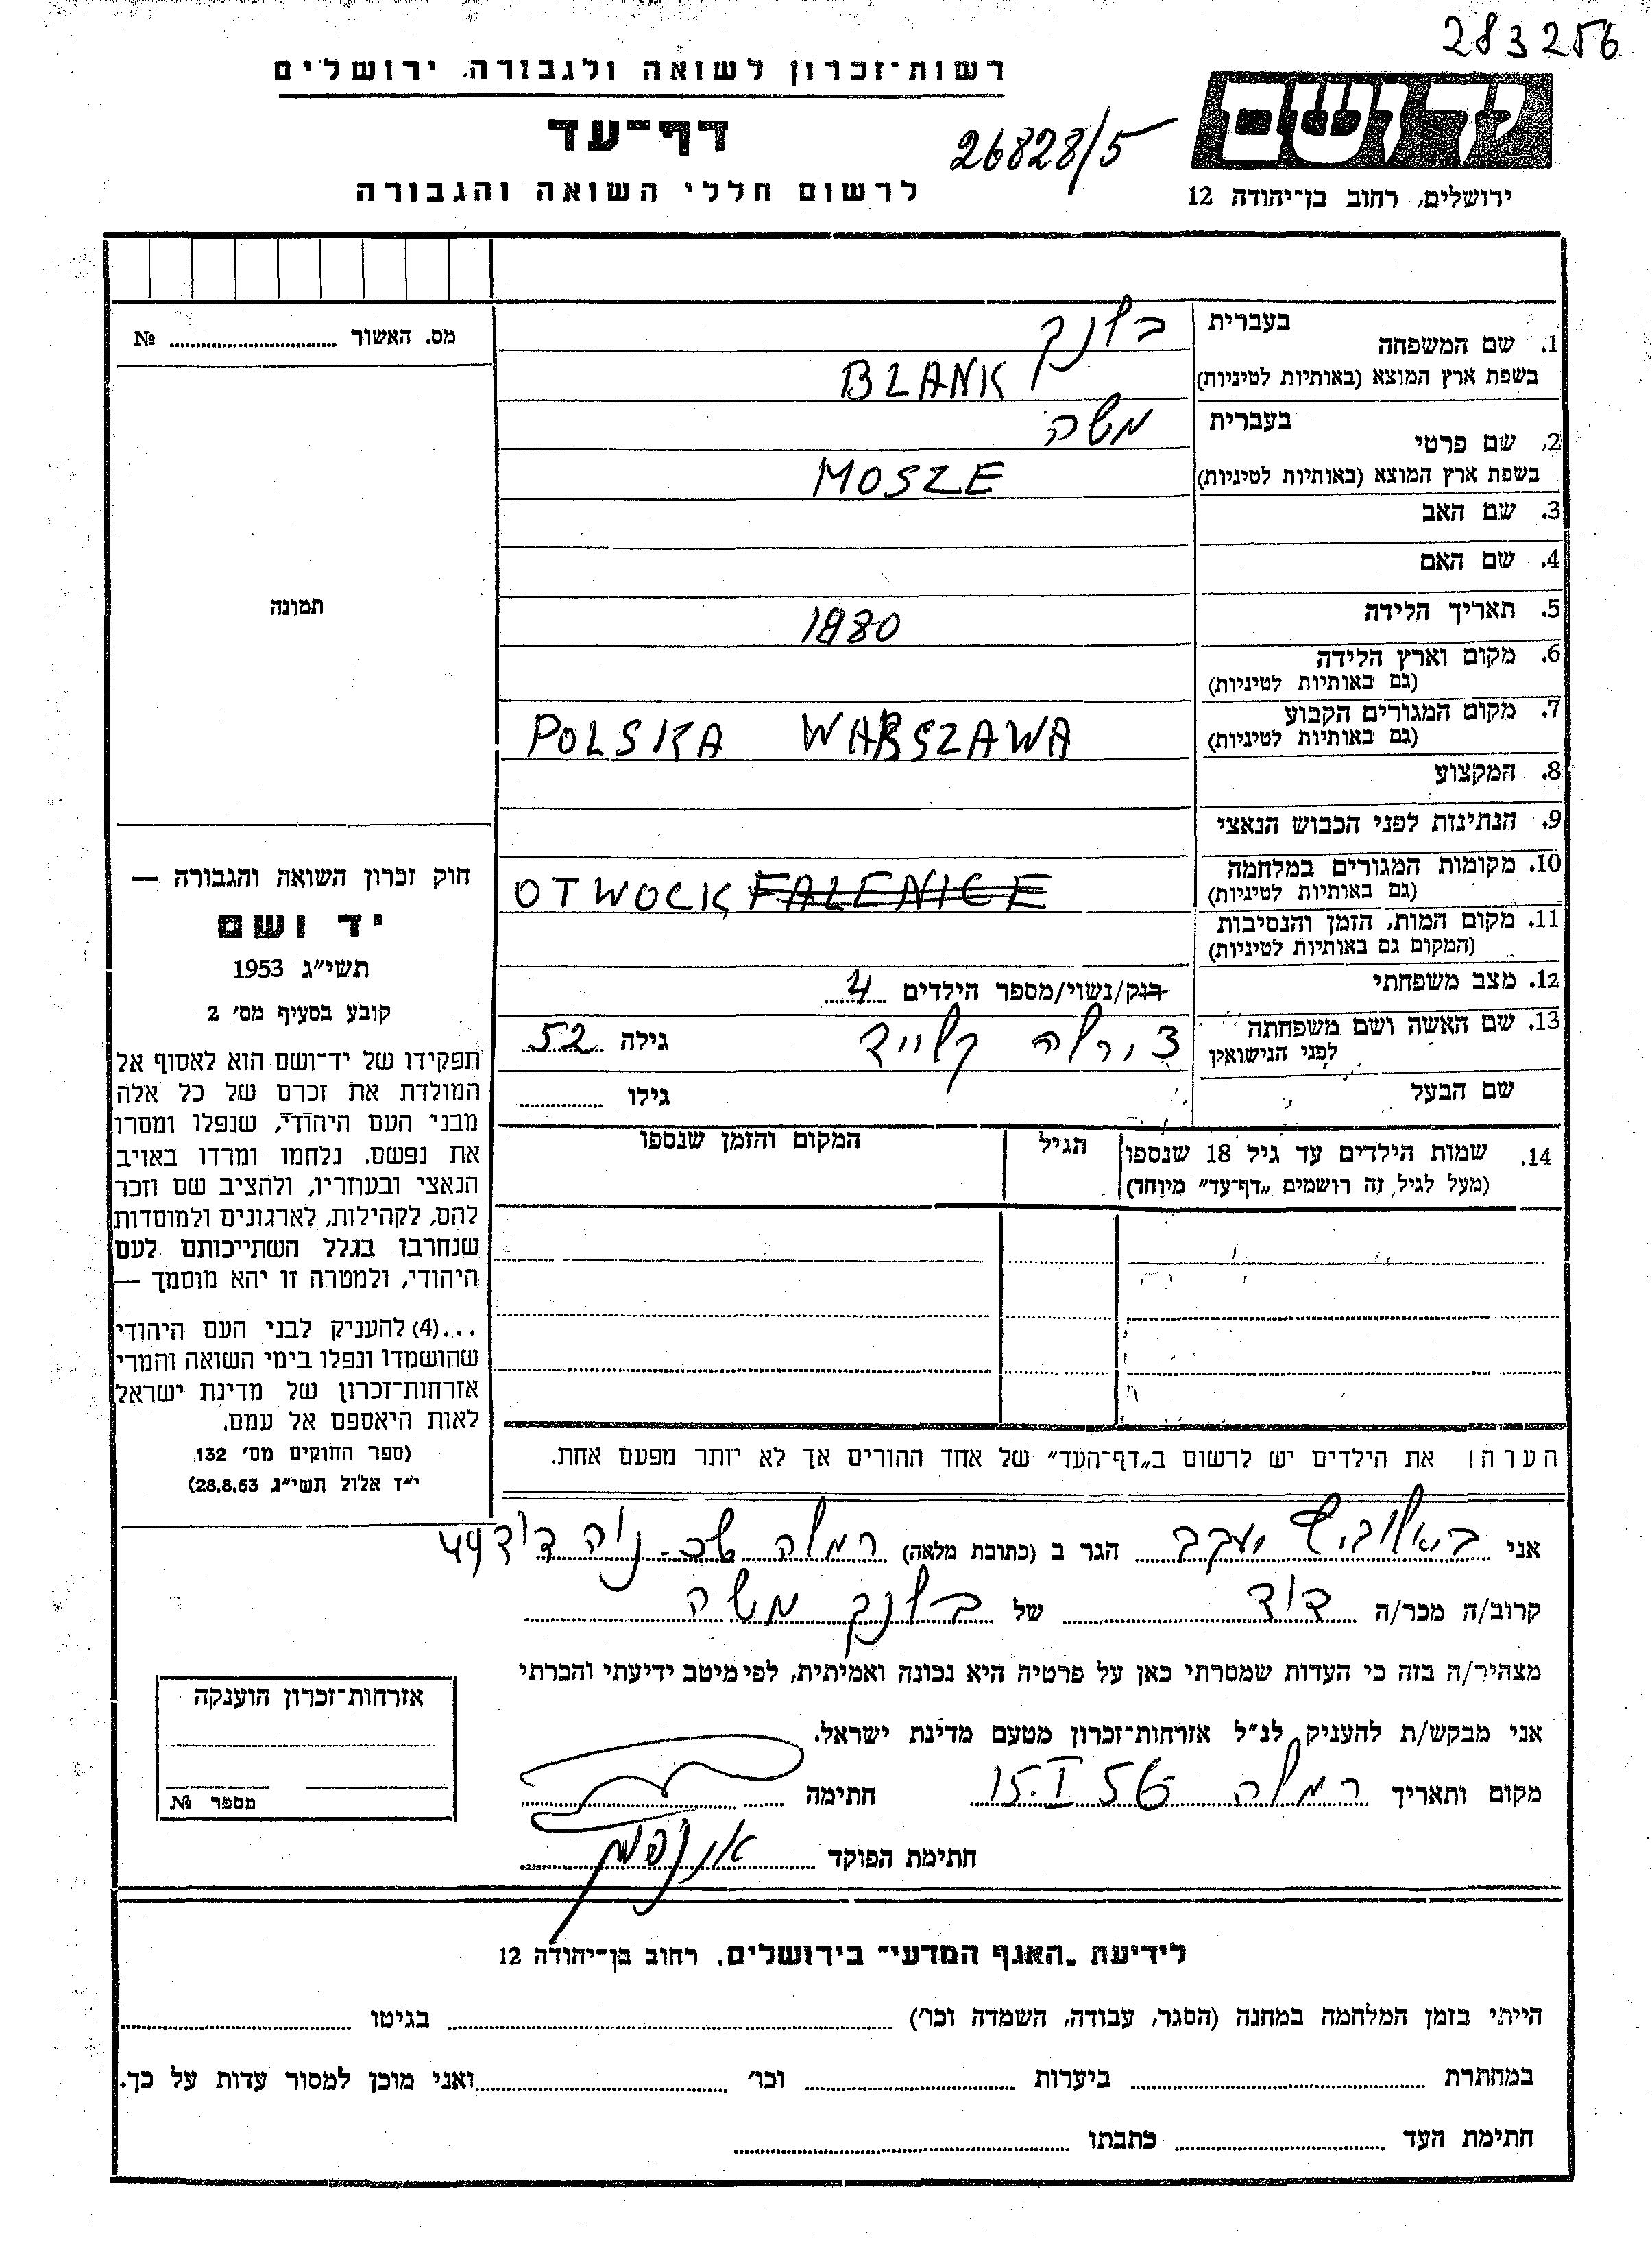 283256
יד ושם
רשות־זכרון לשואה ולגבורה, ירושלים
דף־עד
26828/5
ירושלים, רחוב בן־יהודה 12
לרשום חללי השואה והגבורה
מס. האשור № ........
1. שם המשפחה בעברית בלנק
בשפת ארץ המוצא (באותיות לטיניות) BLANK
2. שם פרטי בעברית משה
בשפת ארץ המוצא (באותיות לטיניות) MOSZE
3. שם האב
4. שם האם
5. תאריך הלידה 1880
6. מקום וארץ הלידה
(גם באותיות לטיניות)
7. מקום המגורים הקבוע POLSKA WARSZAWA
(גם באותיות לטיניות)
8. המקצוע
9. הנתינות לפני הכבוש הנאצי
10. מקומות המגורים במלחמה OTWOCK FALENICE
(גם באותיות לטיניות)
11. מקום המות, הזמן והנסיבות
(המקום גם באותיות לטיניות)
12. מצב משפחתי רוק/נשוי/מספר הילדים 4
13. שם האשה ושם משפחתה גילה 52
לפני הנישואין
שם הבעל גילו ........
14. שמות הילדים עד גיל 18 שנספו הגיל המקום והזמן שנספו
(מעל לגיל זה רושמים „דף־עד” מיוחד)
תמונה
חוק זכרון השואה והגבורה —
יד ושם
תשי״ג 1953
קובע בסעיף מס׳ 2
תפקידו של יד־ושם הוא לאסוף אל
המולדת את זכרם של כל אלה
מבני העם היהודי, שנפלו ומסרו
את נפשם, נלחמו ומרדו באויב
הנאצי ובעוזריו, ולהציב שם וזכר
להם, לקהילות, לארגונים ולמוסדות
שנחרבו בגלל השתייכותם לעם
היהודי, ולמטרה זו יהא מוסמך —
...(4) להעניק לבני העם היהודי
שהושמדו ונפלו בימי השואה והמרי
אזרחות־זכרון של מדינת ישראל
לאות היאספם אל עמם.
(ספר החוקים מס׳ 132
י״ז אלול תשי״ג 28.8.53)
הערה! את הילדים יש לרשום ב„דף־העד” של אחד ההורים אך לא יותר מפעם אחת.
אני יעקב הגר ב (כתובת מלאה) רמלה שכ. נוה דוד 49
קרוב/ה מכר/ה דוד של בלנק משה
מצהיר/ה בזה כי העדות שמסרתי כאן על פרטיה היא נכונה ואמיתית, לפי מיטב ידיעתי והכרתי
אני מבקש/ת להעניק לנ״ל אזרחות־זכרון מטעם מדינת ישראל.
מקום ותאריך רמלה 15.I 56 חתימה
חתימת הפוקד
אזרחות־זכרון הוענקה
מספר №
לידיעת „האגף המדעי” בירושלים, רחוב בן־יהודה 12
הייתי בזמן המלחמה במחנה (הסגר, עבודה, השמדה וכו׳) ........ בגיטו ........
במחתרת ........ ביערות ........ וכו׳ ........ ואני מוכן למסור עדות על כך.
חתימת העד ........ כתבתו ........